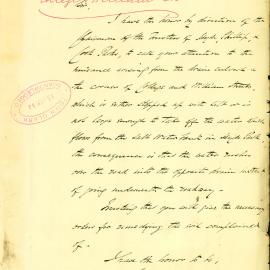 Sir
I have the honor by direction of the
Chairman of the Trustees of Hyde, Phillip, &
Cook Parks, to call your attention to the
nuisance arising from the drain culvert at
the corner of College and William Streets,
which is either stopped up with silt or is
not large enough to take off the water which
flows from the Salt Water Baths in Hyde Park,
the consequence is that the water rushes
over the road into the opposite drain instead
of going underneath the roadway.
Trusting that you will give the necessary
orders for remedying the evil complained
of.
I have the honor to be,